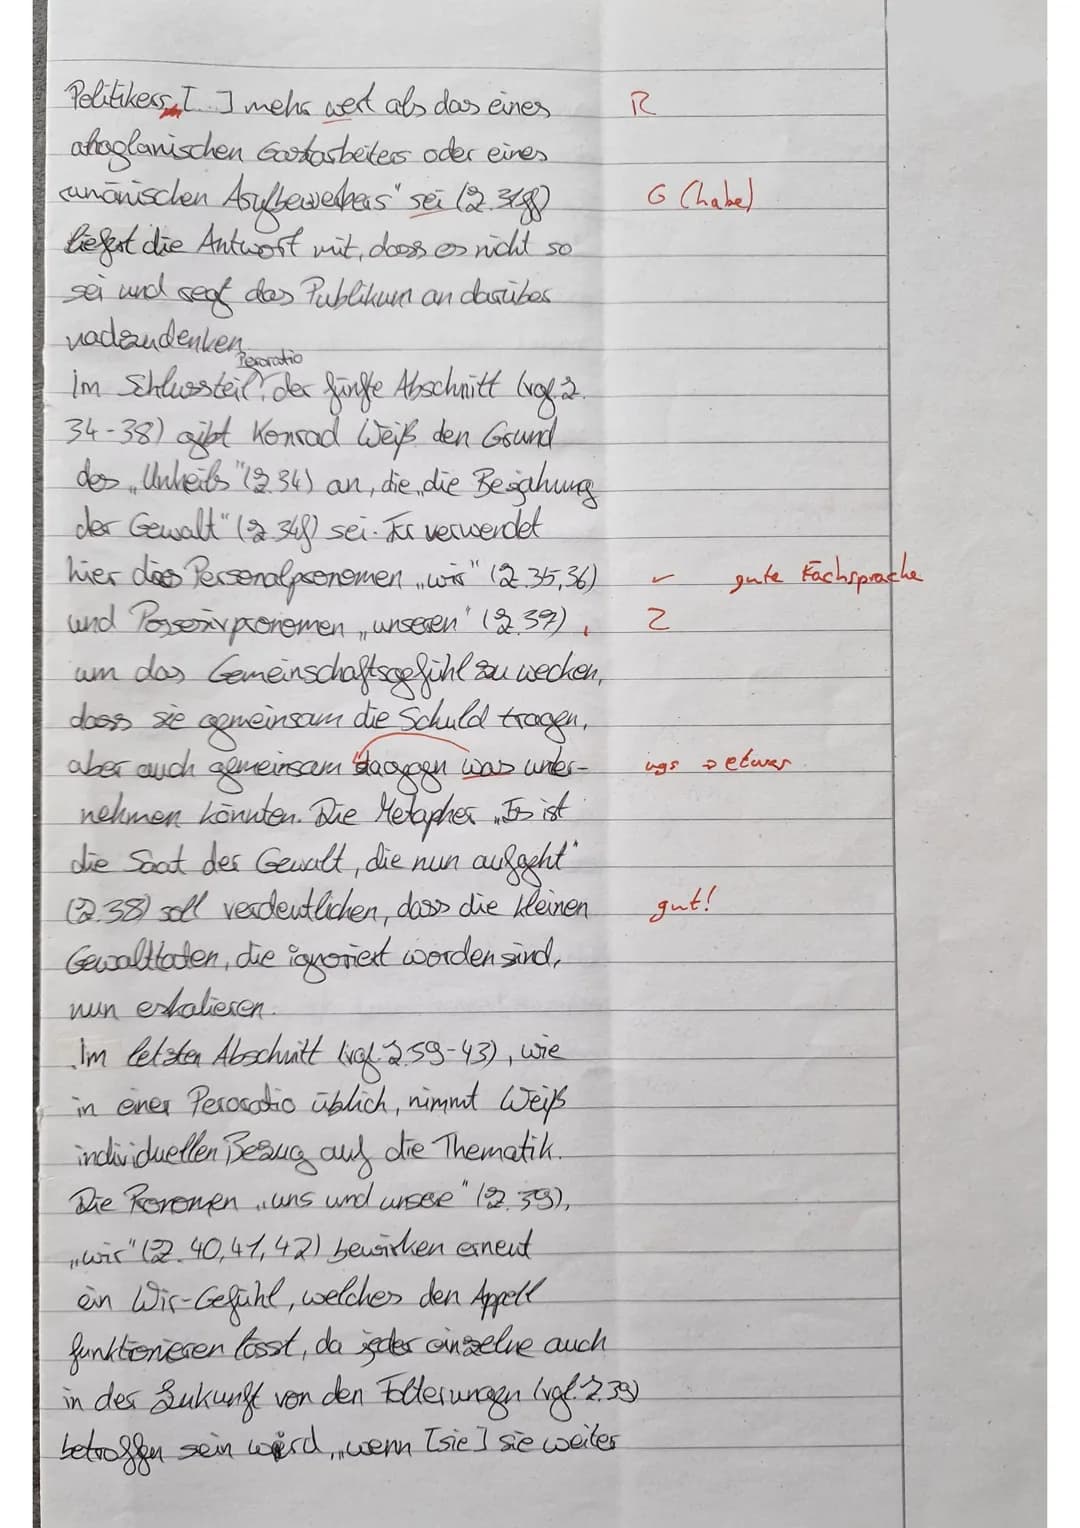 Politikers [...] mehr wert als das eines R
afroglanischen Gastarbeiters oder eines
rumänischen Asylbewerbers" sei (Z. 31f) G (habe)
liefert die Antwort mit, dass es nicht so
sei und regt das Publikum an darüber
nachzudenken.
Peroratio
Im Schlussteil, der fünfte Abschnitt (vgl. Z.
34-38) gibt Konrad Weiß den Grund
des „Unheils" (Z. 34) an, die „die Bejahung
der Gewalt" (Z. 34f) sei. Er verwendet
hier das Personalpronomen „wir" (Z. 35, 36) ✓ gute Fachsprache
und Possesivpronomen „unseren" (Z. 37), Z
um das Gemeinschaftsgefühl zu wecken,
dass sie gemeinsam die Schuld tragen,
aber auch gemeinsam dagegen was unter- ugs → etwas
nehmen könnten. Die Metapher „Es ist
die Saat der Gewalt, die nun aufgeht"
(Z. 38) soll verdeutlichen, dass die kleinen gut!
Gewalttaten, die ignoriert worden sind,
nun eskalieren.
Im letzten Abschnitt (vgl. Z. 39-43), wie
in einer Peroratio üblich, nimmt Weiß
individuellen Bezug auf die Thematik.
Die Pronomen „uns und unsere" (Z. 39),
„wir" (Z. 40, 41, 42) bewirken erneut
ein Wir-Gefühl, welches den Appell
funktionieren lässt, da jeder einzelne auch
in der Zukunft von den Folterungen (vgl. Z. 39)
betroffen sein wird, „wenn [sie] sie weiter